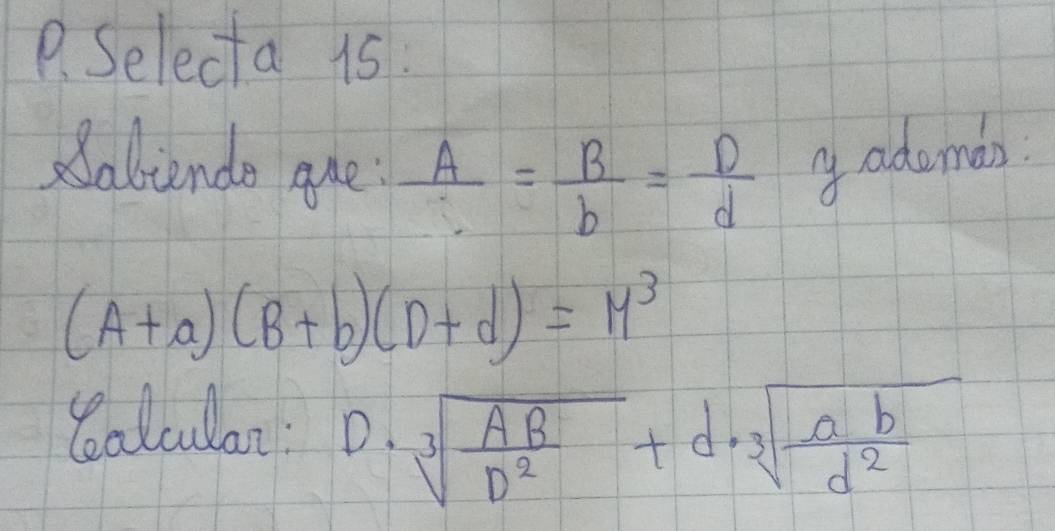 P. Selecta 15:
Sabiendo que: A/ = B/b = D/d y además:
(A+a)(B+b)(D+d) = M³
Calcular: D·∛(AB/D²) + d·∛(a b/d²)